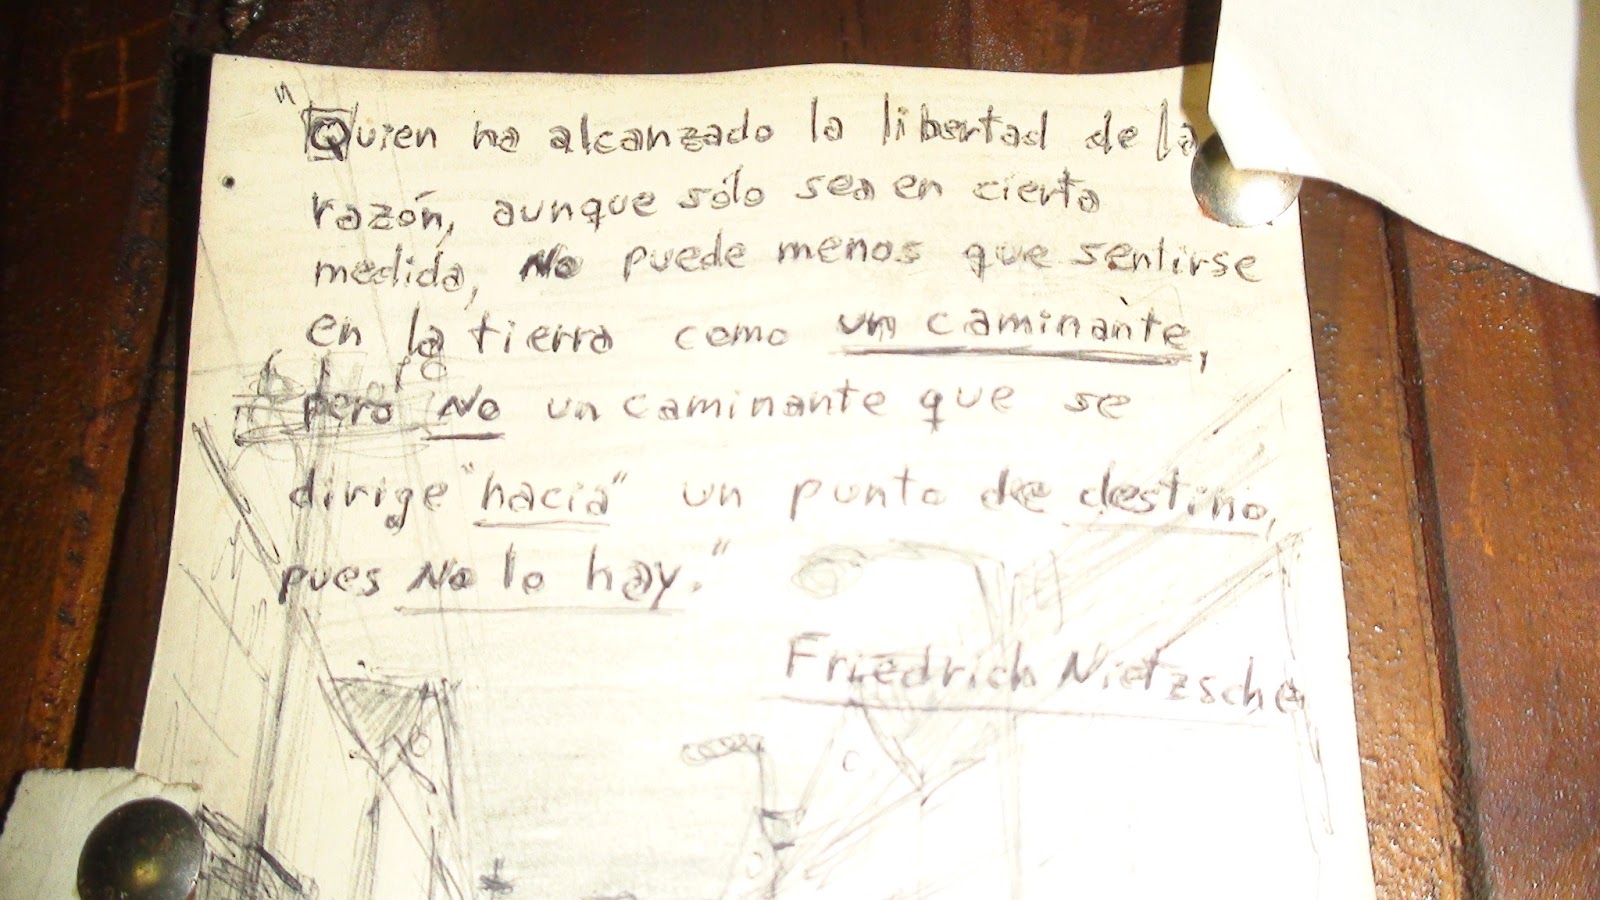 "Quien ha alcanzado la libertad de la
razón, aunque sólo sea en cierta
medida, No puede menos que sentirse
en la tierra como un caminante,
pero No un caminante que se
dirige "hacia" un punto de destino,
pues No lo hay."
Friedrich Nietzsche